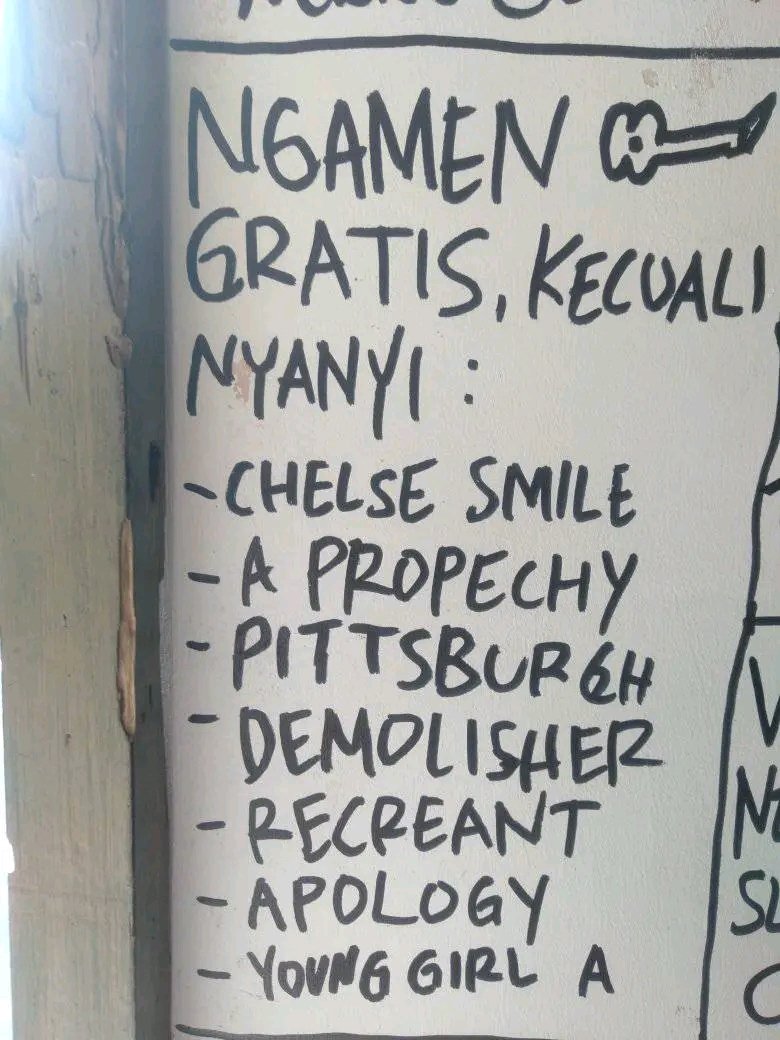 NGAMEN
GRATIS, KECUALI
NYANYI :
- CHELSE SMILE
- A PROPECHY
- PITTSBURGH
- DEMOLISHER
- RECREANT
- APOLOGY
- YOUNG GIRL A